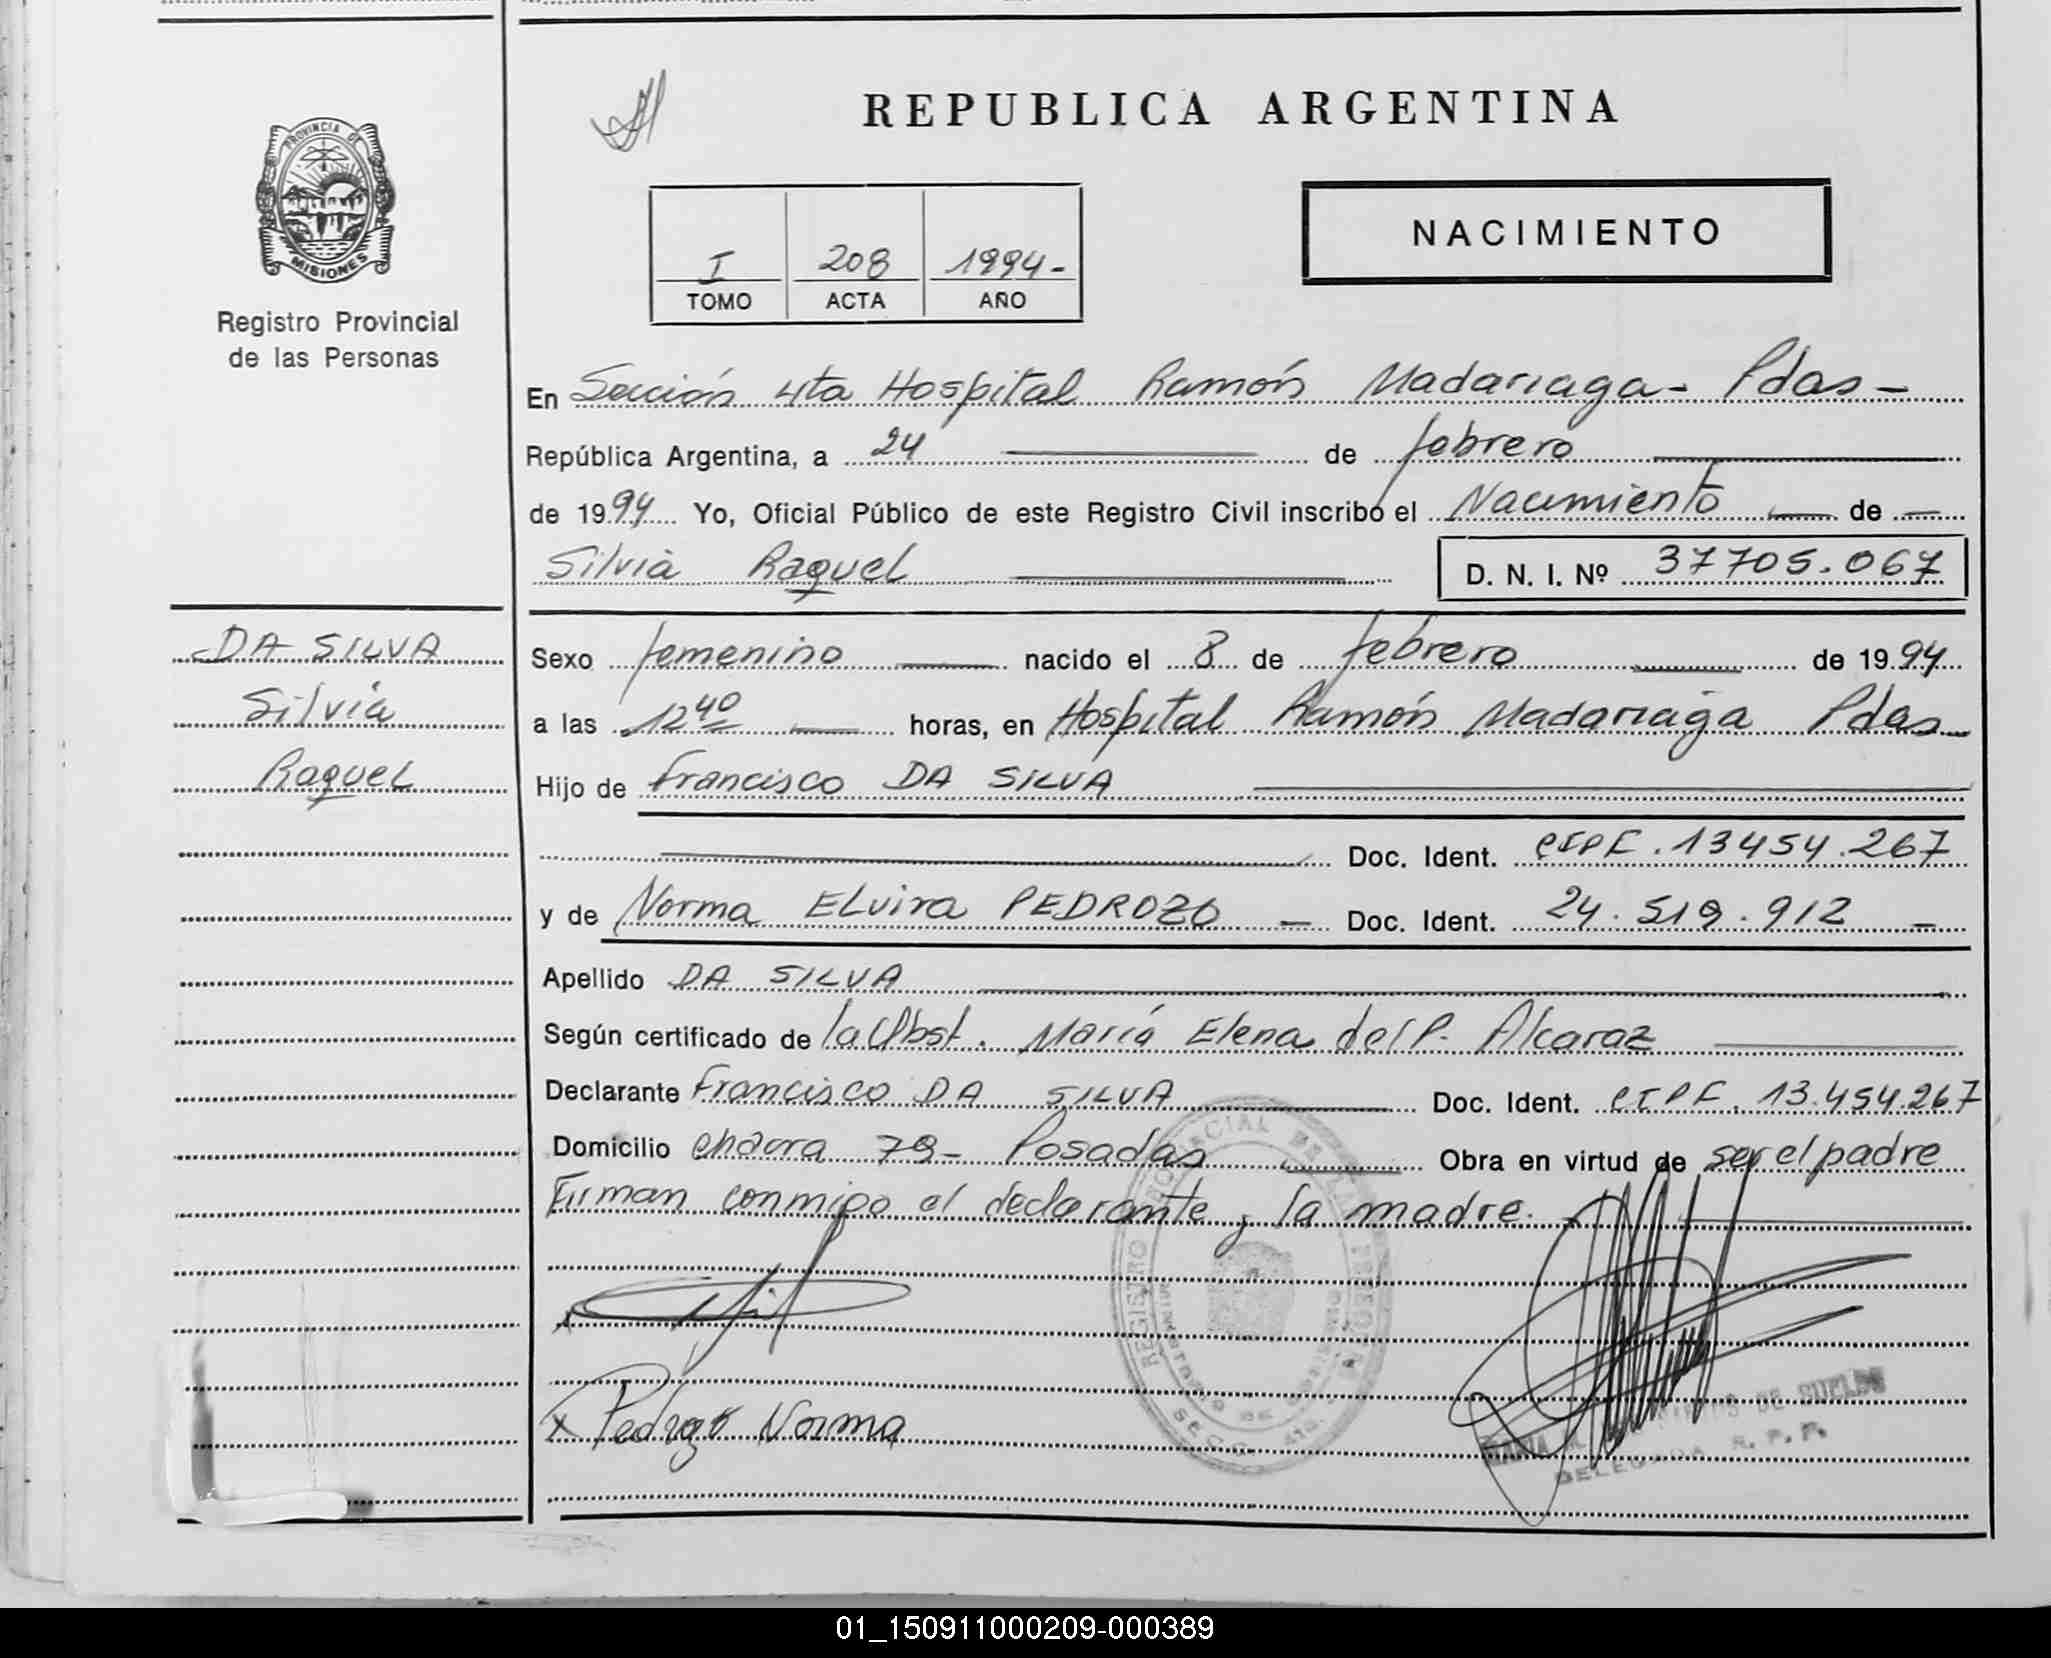 REPUBLICA ARGENTINA
PROVINCIA DE
MISIONES
Registro Provincial
de las Personas
I 208 1994-
TOMO ACTA AÑO
NACIMIENTO
En Sección 4ta Hospital Ramón Madariaga - Pdas -
República Argentina, a 24 de febrero
de 1994 Yo, Oficial Público de este Registro Civil inscribo el Nacimiento de
Silvia Raquel D. N. I. Nº 37705.067
DA SILVA
Silvia
Raquel
Sexo femenino nacido el 8 de febrero de 1994
a las 12 40 horas, en Hospital Ramón Madariaga Pdas
Hijo de Francisco DA SILVA
Doc. Ident. CIPF. 13454.267
y de Norma ELvira PEDROZO - Doc. Ident. 24.519.912 -
Apellido DA SILVA
Según certificado de la Obst. María Elena del P. Alcaraz
Declarante Francisco DA SILVA Doc. Ident. CIPF. 13.454.267
Domicilio chacra 79- Posadas Obra en virtud de ser el padre
Firman conmigo el declarante y la madre.
x Pedrozo Norma
REGISTRO PROVINCIAL DE LAS PERSONAS
SECC. 4ta.
DE SUELDO
DELEGADA R. P. P.
01_150911000209-000389